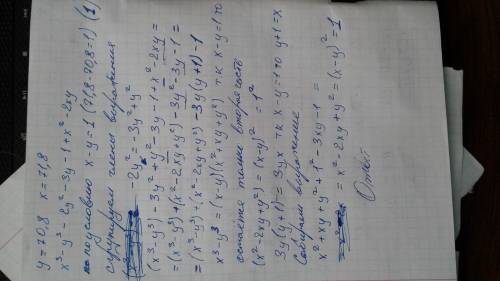 y=70,8 x=71,8
x³-y³-2y²-3y-1+x²-2xy
по условию x-y=1 (71,8-70,8=1) (1)
сгруппируем члены выражения
-2y²=-3y²+y²
(x³-y³)-3y²+y²-3y-1+x²-2xy=
=(x³-y³)+(x²-2xy+y²)-3y²-3y-1=
=(x³-y³)+(x²-2xy+y²)-3y(y+1)-1
x³-y³=(x-y)(x²+xy+y²) т.к x-y=1 то
остается только вторая часть
(x²-2xy+y²)=(x-y)²=1²
3y(y+1)=3yx т.к x-y=1 то y+1=x
Собираем выражение
x²+xy+y²+1²-3xy-1=
=x²-2xy+y²=(x-y)²=1
Ответ